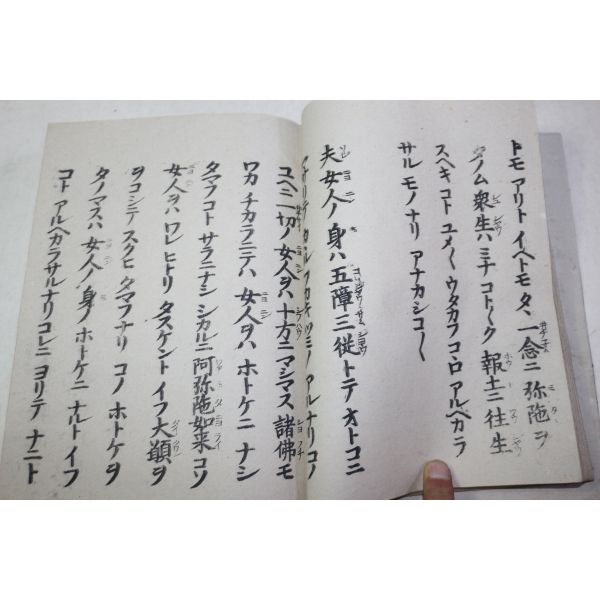 トモアリトイヘトモタヽ一念ニ弥陁ヲ
タノム衆生ハミナコト〱ク報土ニ往生
スヘキコトユメ〱ウタカフコヽロアルヘカラ
サルモノナリアナカシコ〱
夫女人ノ身ハ五障三従トテオトコニ
マサリテカヽルフカキツミノアルナリコノ
ユヘニ一切ノ女人ヲハ十方ニマシマス諸佛モ
ワカチカラニテハ女人ヲハホトケニナシ
タマフコトサラニナシシカルニ阿弥陁如来コソ
女人ヲハワレヒトリタスケントイフ大願ヲ
ヲコシテスクヒタマフナリコノホトケヲ
タノマスハ女人ノ身ノホトケニナルトイフ
コトアルヘカラサルナリコレニヨリテナニト